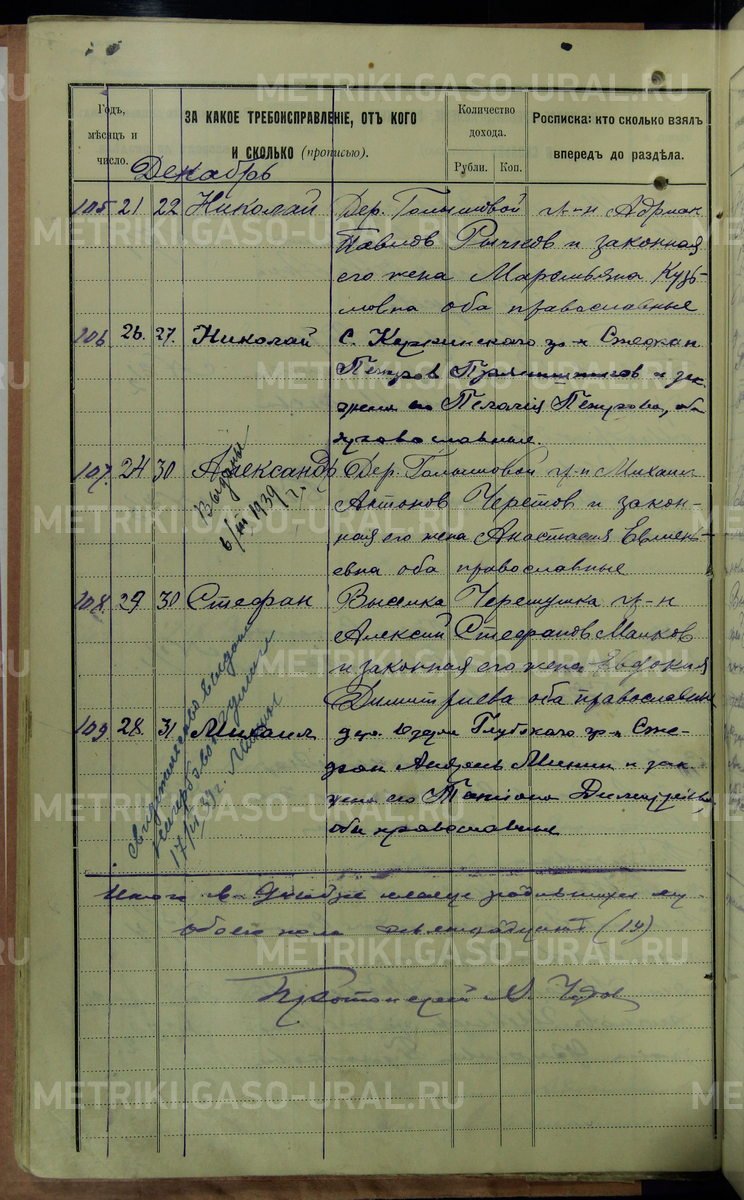 Годъ,
мѣсяцъ и
число.
ЗА КАКОЕ ТРЕБОИСПРАВЛЕНІЕ, ОТЪ КОГО
И СКОЛЬКО (прописью).
Количество
дохода.
Рубли. Коп.
Росписка: кто сколько взялъ
впередъ до раздѣла.
Декабрь
105 21 22 Николай Дер. Голышовой гр-н Адриан
Павлов Рычков и законная
его жена Маремьяна Кузь-
мовна оба православные
106 26. 27. Николай С. гр-н Стефан
Петров и зак.
жена его Пелагія Петрова, оба
православные.
107. 24 30 Александр Дер. Голышовой гр-н Михаил
Антонов и закон-
ная его жена Анастасия
евна оба православные
Выданы
6/III 1939 г.
108. 29 30 Стефан Выселка Черемушка гр-н
Алексий Стефанов Манков
и законная его жена Евдокия
Димитриева оба православные
109 28. 31. Михаил дер. Озера Глубокого гр-н Сте-
фан Минин и зак.
жена его Татіана Димитріева
оба православные
Свидетельство выдано
17/II 39 г.
Итого в Декабре месяце родившихся
обоего пола (19)
Протоиерей
METRIKI.GASO-URAL.RU